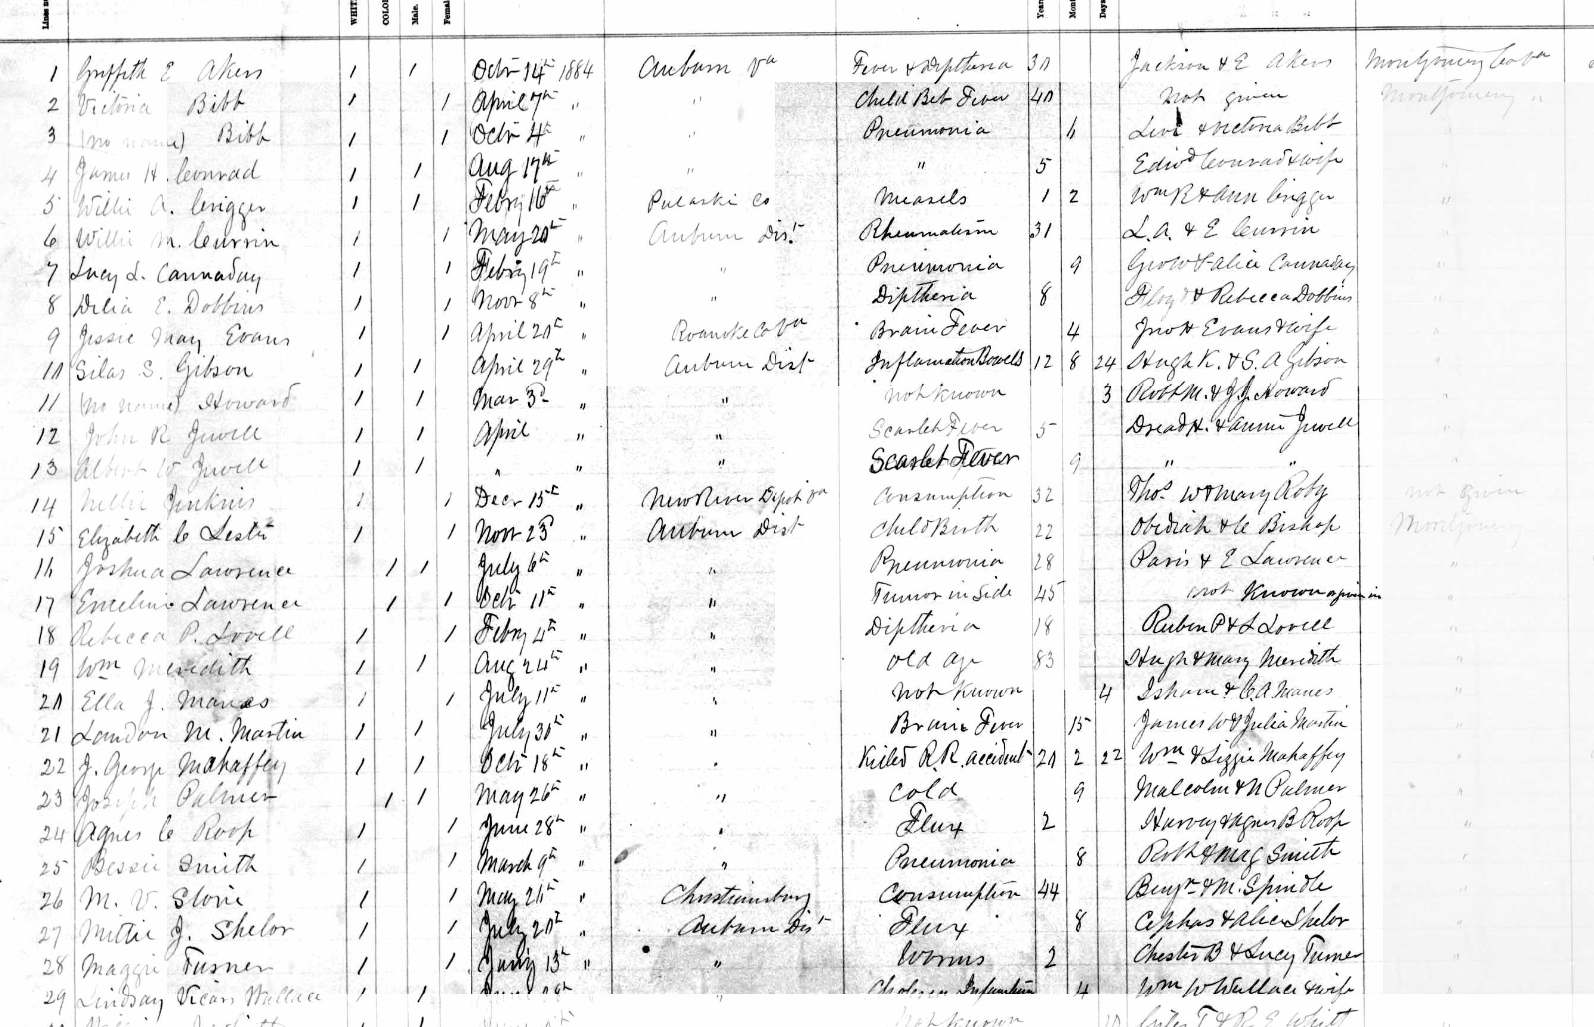 Lines no. WHITE COLO Male. Femal Year Mont Days
1 Griffith E Akers 1 1 Octr 14th 1884 Auburn Va Fever & Diptheria 30 Jackson & E Akers Montgomery Co Va
2 Victoria Bibb 1 1 April 7th " " Child Bet Fever 40 not given Montgomery "
3 (no name) Bibb 1 1 Octr 4th " " Pneumonia 6 Levi & Victoria Bibb
4 James H. Conrad 1 1 Aug 17th " " 5 Edwd Conrad & wife
5 Willie A. Crigger 1 1 Febry 16th " Pulaski Co Measels 1 2 Wm R & Ann Crigger "
6 Willie M. Currin 1 1 May 20th " Auburn Dist. Rheumatism 31 L.A. & E Currin "
7 Lucy L. Cannaday 1 1 Febry 19th " " Pneumonia 9 Geo W & Alice Cannaday "
8 Delia E. Dobbins 1 1 Novr 8th " " Diptheria 8 Floyd & Rebecca Dobbins "
9 Jessie May Evans 1 1 April 20th " Roanoke Co Va Brain Fever 4 Jno H Evans & wife "
10 Silas S. Gibson 1 1 April 29th " Auburn Dist Inflamation Bowels 12 8 24 Hugh K. & S. A Gibson "
11 (no name) Howard 1 1 Mar 3d " " not Known 3 Robt M. & J. J. Howard "
12 John R Jewell 1 1 April " " Scarlet Fever 5 Dread H. & Annie Jewell "
13 Albert W Jewell 1 1 " " " Scarlet Fever 9 " " "
14 Nellie Jenkins 1 1 Decr 15th " New River Depot Va Consumption 32 Thos W & Mary Roby not given
15 Elizabeth C Lester 1 1 Novr 23d " Auburn Dist Child Birth 22 Obediah & C Bishop Montgomery
16 Joshua Lawrence 1 1 July 6th " " Pneumonia 28 Paris & E Lawrence "
17 Emeline Lawrence 1 1 Octr 11th " " Tumor in Side 45 not Known "
18 Rebecca P. Lovell 1 1 Febry 4th " " Diptheria 18 Ruben P & L Lovell "
19 Wm Meredith 1 1 Aug 24th " " old age 83 Hugh & Mary Meredith "
20 Ella J. Manes 1 1 July 11th " " not Known 4 Isham & C A Manes "
21 Landon M. Martin 1 1 July 30th " " Brain Fever 15 James W & Julia Martin "
22 J. George Mahaffey 1 1 Octr 18th " " Killed R.R. accident 20 2 22 Wm & Lizzie Mahaffey "
23 Joseph Palmer 1 1 May 26th " " Cold 9 Malcolm & N Palmer "
24 Agnes C Roop 1 1 June 28th " " Flux 2 Harvey & Agnes B Roop "
25 Bessie Smith 1 1 March 9th " " Pneumonia 8 Robt & Mag Smith "
26 M. V. Slone 1 1 May 26th " Christiansburg Consumption 44 Benjn & M. Spindle "
27 Mittie J. Shelor 1 1 July 20th " Auburn Dist Flux 8 Cephas & Alice Shelor "
28 Maggie Turner 1 1 Janry 13th " " Worms 2 Chester B & Lucy Turner "
29 Lindsay Vicars Wallace 1 1 " Cholera Infantum 4 Wm W Wallace & wife "
not Known Giles T & R. E Whitt